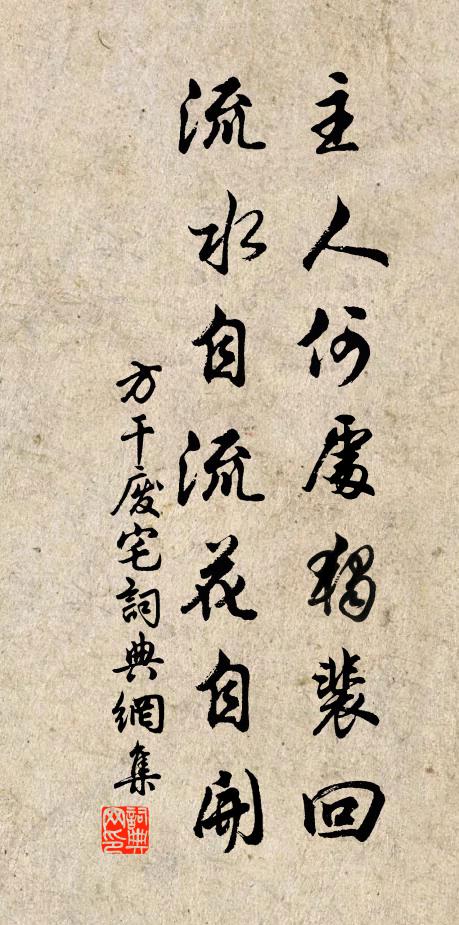 主人何處獨裴回
流水自流花自開
方干廢宅詞典網集
詞典网印